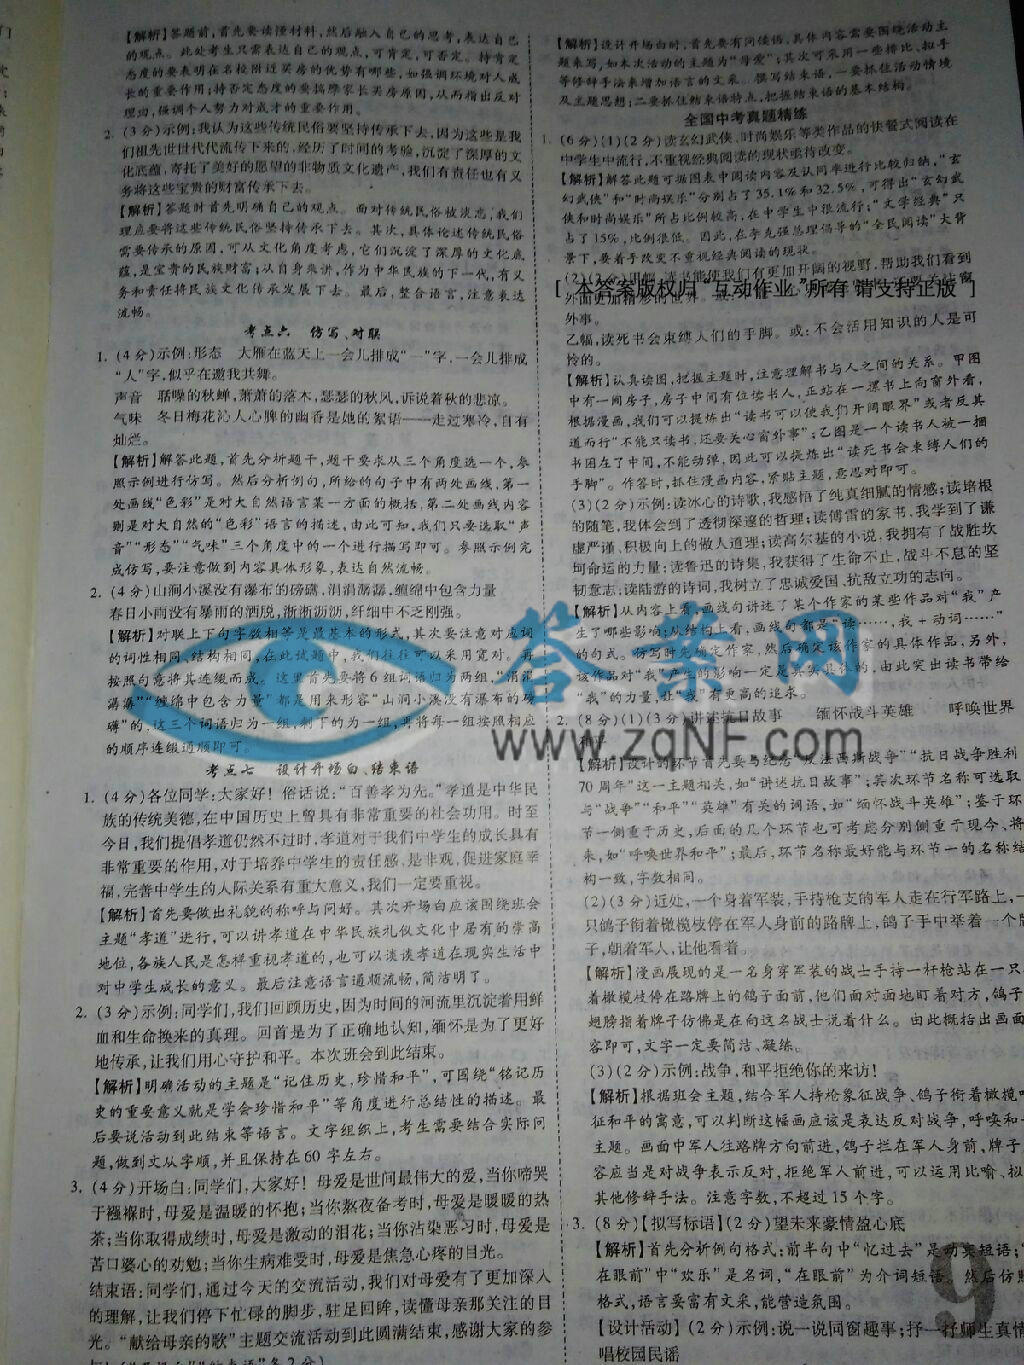 【解析】答题前,首先要读懂材料,然后融入自己的思考,表达自己
的观点。此处考生只需表达自己的观点,可肯定,可否定。持肯定
态度的要表明在名校附近买房的优势有哪些,如强调环境对人成
长的重要作用;持否定态度的要揣摩家长买房原因,从而指出反对
理由,强调个人努力对成才的重要作用。
2. (3分)示例:我认为这些传统民俗要坚持传承下去,因为这些是我
们祖先世世代代流传下来的,经历了时间的考验,沉淀了深厚的文
化底蕴,寄托了美好的愿望的非物质文化遗产,我们有责任也有义
务将这些宝贵的财富传承下去。
【解析】答题时首先明确自己的观点。面对传统民俗被淡忘,我们
理应要将这些传统民俗坚持传承下去。其次,具体论述传统民俗
需要传承的原因,可从文化角度考虑,它们沉淀了深厚的文化底
蕴,是宝贵的民族财富;从自身来讲,作为中华民族的下一代,有义
务和责任将民族文化传承发展下去。最后,整合语言,注意表达
流畅。
考点六 仿写、对联
1. (4分)示例:形态 大雁在蓝天上一会儿排成“一”字,一会儿排成
“人”字,似乎在邀我共舞。
声音 聒噪的秋蝉,萧萧的落木,瑟瑟的秋风,诉说着秋的悲凉。
气味 冬日梅花沁人心脾的幽香是她的絮语——走过寒冷,自有
灿烂。
【解析】解答此题,首先分析题干,题干要求从三个角度选一个,参
照示例进行仿写。然后分析例句,所给的句子中有两处画线,第一
处画线“色彩”是对大自然语言某一方面的概括,第二处画线内容
则是对大自然的“色彩”语言的描述,由此可知,我们只要选取“声
音”“形态”“气味”三个角度中的一个进行描写即可。参照示例完
成仿写,要注意做到内容具体形象,表达自然流畅。
2. (4分)山涧小溪没有瀑布的磅礴,涓涓潺潺,缠绵中包含力量
春日小雨没有暴雨的洒脱,淅淅沥沥,纤细中不乏刚强。
【解析】对联上下句字数相等是最基本的形式,其次要注意对应词
的词性相同、结构相同,在此试题中,我们往往可以采用宽对。再
按照句意将其连缀而成。这里首先要将6组词语归为两组,“涓涓
潺潺”“缠绵中包含力量”都是用来形容“山涧小溪没有瀑布的磅
礴”的,这三个词语归为一组,剩下的为一组,再将每一组按照相应
的顺序连缀通顺即可。
考点七 设计开场白、结束语
1. (4分)各位同学:大家好!俗话说:“百善孝为先。”孝道是中华民
族的传统美德,在中国历史上曾具有非常重要的社会功用。时至
今日,我们提倡孝道仍然不过时,孝道对于我们中学生的成长具有
非常重要的作用,对于培养中学生的责任感、是非观,促进家庭幸
福,完善中学生的人际关系有重大意义,我们一定要重视。
【解析】首先要做出礼貌的称呼与问好。其次开场白应该围绕班会
主题“孝道”进行,可以讲孝道在中华民族礼仪文化中居有的崇高
地位,各族人民是怎样重视孝道的,也可以谈谈孝道在现实生活中
对中学生成长的意义。最后注意语言通顺流畅,简洁明了。
2. (3分)示例:同学们,我们回顾历史,因为时间的河流里沉淀着用鲜
血和生命换来的真理。回首是为了正确地认知,缅怀是为了更好
地传承,让我们用心守护和平。本次班会到此结束。
【解析】明确活动的主题是“记住历史,珍惜和平”,可围绕“铭记历
史的重要意义就是学会珍惜和平”等角度进行总结性的描述。最
后要说活动到此结束等语言。文字组织上,考生需要结合实际问
题,做到文从字顺,并且保持在60字左右。
3. (4分)开场白:同学们,大家好!母爱是世间最伟大的爱,当你啼哭
于襁褓时,母爱是温暖的怀抱;当你熬夜备考时,母爱是暖暖的热
茶;当你取得成绩时,母爱是激动的泪花;当你沾染恶习时,母爱是
苦口婆心的劝勉;当你生病难受时,母爱是焦急心疼的目光。
结束语:同学们,通过今天的交流活动,我们对母爱有了更加深入
的理解,让我们停下忙碌的脚步,驻足回眸,读懂母亲那关注的目
光。“献给母亲的歌”主题交流活动到此圆满结束,感谢大家的参
【解析】设计开场白时,首先要有问候语,具体内容需要围绕活动主
题来写,如本次活动的主题为“母爱”;其次可采用一些排比、拟人
等修辞手法来增加语言的文采。撰写结束语,一要抓住活动情境
及主题思想;二要抓住结束语特点,把握结束语的基本结构。
全国中考真题精练
1. (6分)(1)(2分)读玄幻武侠、时尚娱乐等类作品的快餐式阅读在
中学生中流行,不重视经典阅读的现状亟待改变。
【解析】解答此题可据图表中阅读内容及认同率进行比较归纳,“玄
幻武侠”和“时尚娱乐”分别占了35.1%和32.5%,可得出“玄幻武
侠和时尚娱乐”所占比例较高,在中学生中很流行;“文学经典”只
占了15%,比例很低。因此,在李克强总理倡导的“全民阅读”大背
景下,要着手改变不重视经典阅读的现状。
(2)(2分)甲幅,读书能使我们有更加开阔的视野,帮助我们看到
[ 本答案版权归“互动作业”所有 请支持正版 ]
外事。
乙幅,读死书会束缚人们的手脚。或:不会活用知识的人是可
怜的。
【解析】认真读图,把握主题时,注意理解书与人之间的关系。甲图
中有一间房子,房子中间有位读书人,正站在一摞书上向窗外看,
根据漫画,我们可以提炼出“读书可以使我们开阔眼界”或者反其
道而行“不能只读书,还要关心窗外事”;乙图是一个读书人被一捆
书困在了中间,不能动弹,因此可以提炼出“读死书会束缚人们的
手脚”。作答时,抓住画内容,紧贴主题,意思对即可。
(3)(2分)示例:读冰心的诗歌,我感悟了纯真细腻的情感;读培根
的随笔,我体会到了透彻深邃的哲理;读傅雷的家书,我学到了谦
虚严谨、积极向上的做人道理;读高尔基的小说,我拥有了战胜坎
坷命运的力量;读鲁迅的诗集,我获得了生命不止,战斗不息的坚
韧意志;读陆游的诗词,我树立了忠诚爱国、抗敌立功的志向。
【解析】从内容上看,画线句讲述了某个作家的某些作品对“我”产
生了哪些影响;从结构上看,画线句都是“读……,我+动词……”
的句式。仿写时先确定作家,然后确定该作家的具体作品,另外,
该作品对“我”产生的影响一定是真实具体的,由此突出读书带给
“我”的力量,让“我”有更高的追求。
答案网
www.zqNF.com
2. (8分)(1)(3分)讲述抗日故事 缅怀战斗英雄 呼唤世界
【解析】设计的环节首先要与纪念“反法西斯战争”“抗日战争胜利
70周年”这一主题相关,如“讲述抗日故事”;其次环节名称可选取
与“战争”“和平”“英雄”有关的词语,如“缅怀战斗英雄”;鉴于环
节一侧重于历史,后面的几个环节也可考虑分别侧重于现今、将
来,如“呼唤世界和平”;最后,环节名称最好能与环节一的名称结
构一致,字数相同。
(2)(3分)近处,一个身着军装,手持枪支的军人走在行军路上,一
只鸽子衔着橄榄枝停在军人身前的路牌上,鸽子手中举着一个牌
子,朝着军人,让他看着。
【解析】漫画展现的是一名身穿军装的战士手持一杆枪站在一只衔
着橄榄枝停在路牌上的鸽子面前,他们面对面地盯着对方,鸽子
翅膀指着牌子仿佛是在向这名战士说着什么。由此概括出画面
容即可,文字一定要简洁、凝练。
(3)(2分)示例:战争,和平拒绝你的来访!
【解析】根据班会主题,结合军人持枪象征战争、鸽子衔着橄榄
征和平的寓意,可以判断这幅画应该是表达反对战争,呼唤和
主题。画面中军人往路牌方向前进,鸽子拦在军人身前,牌子
容应当是对战争表示反对,拒绝军人前进,可以运用比喻、拟
其他修辞手法。注意字数,不超过15个字。
3. (8分)【拟写标语】(2分)望未来豪情盈心底
【解析】首先分析例句格式:前半句中“忆过去”是动宾短语;“
在眼前”中“欢乐”是名词,“在眼前”为介词短语。然后仿照
格式,语言要富有文采,能营造氛围。
【设计活动】(2分)示例:说一说同窗趣事;抒一抒师生真情
唱校园民谣
9